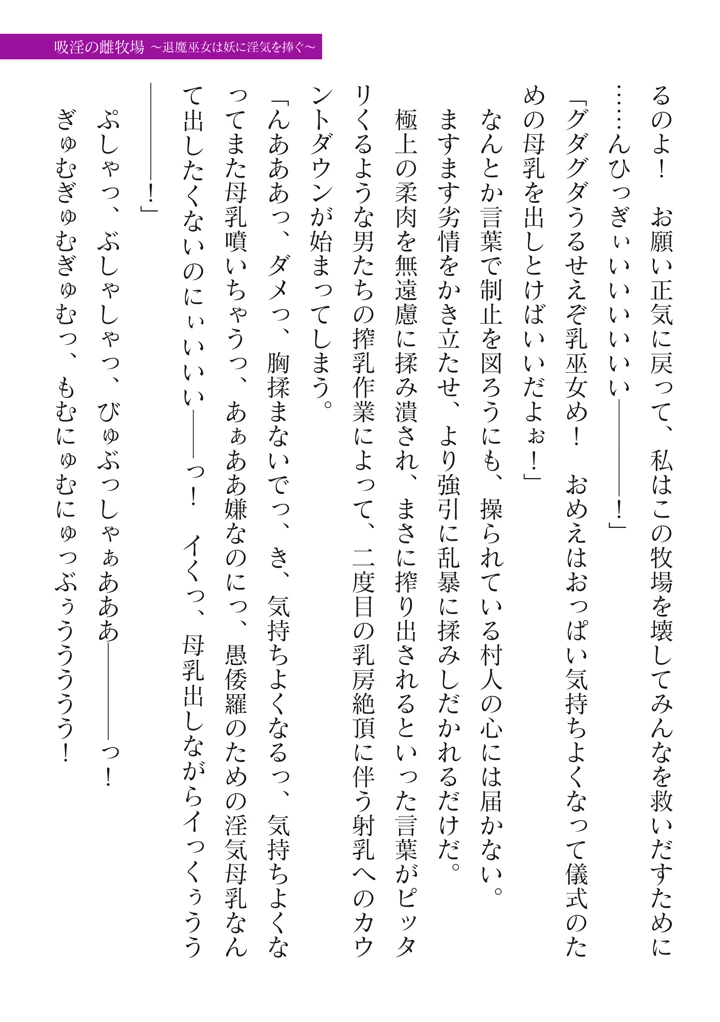 吸淫の雌牧場 ～退魔巫女は妖に淫気を捧ぐ～
るのよ！　お願い正気に戻って、私はこの牧場を壊してみんなを救いだすために
……んひっぎぃいいいいいい――――！」
「グダグダうるせえぞ乳巫女め！　おめえはおっぱい気持ちよくなって儀式のた
めの母乳を出しとけばいいだよぉ！」
　なんとか言葉で制止を図ろうにも、操られている村人の心には届かない。
　ますます劣情をかき立たせ、より強引に乱暴に揉みしだかれるだけだ。
　極上の柔肉を無遠慮に揉み潰され、まさに搾り出されるといった言葉がピッタ
リくるような男たちの搾乳作業によって、二度目の乳房絶頂に伴う射乳へのカウ
ントダウンが始まってしまう。
「んあああっ、ダメっ、胸揉まないでっ、き、気持ちよくなるっ、気持ちよくな
ってまた母乳噴いちゃうっ、あぁああ嫌なのにっ、愚倭羅のための淫気母乳なん
て出したくないのにぃいいい――っ！　イくっ、母乳出しながらイっくぅうう
――――！」
　ぷしゃっ、ぶしゃしゃっ、びゅぶっしゃぁあああ――――っ！
　ぎゅむぎゅむぎゅむっ、もむにゅむにゅっぶぅうううううう！